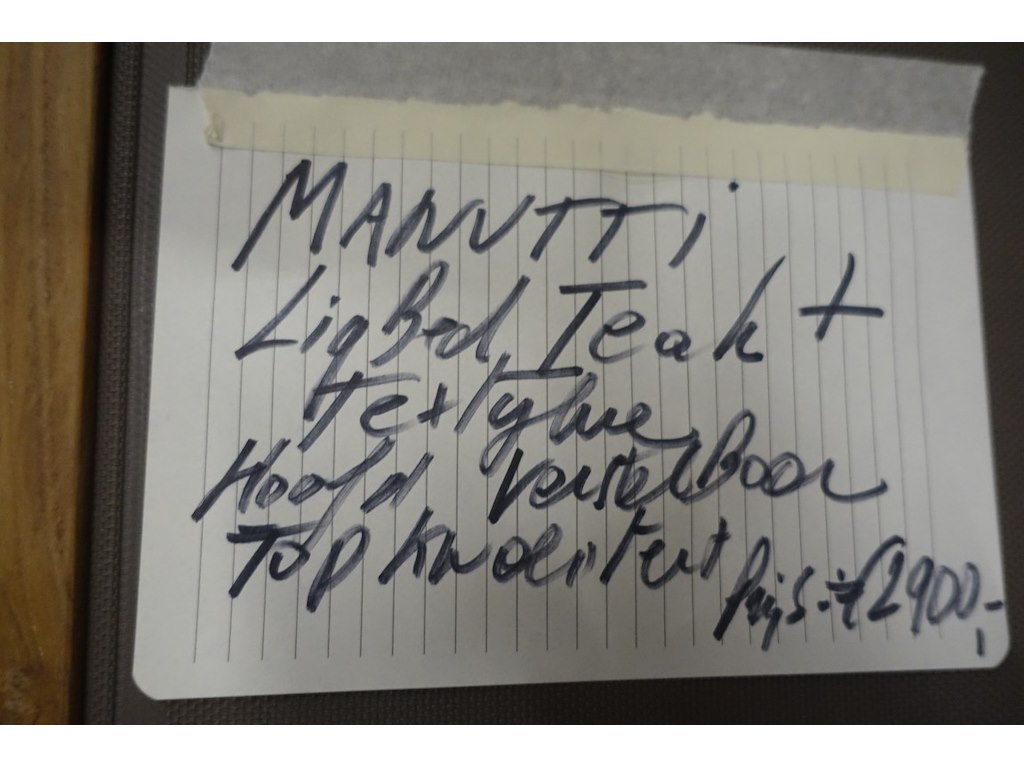 MANUTTi
LigBed Teak +
Textylene
Hoofd verstelBaar
Top Kwaliteit
Prijs: €2900,-